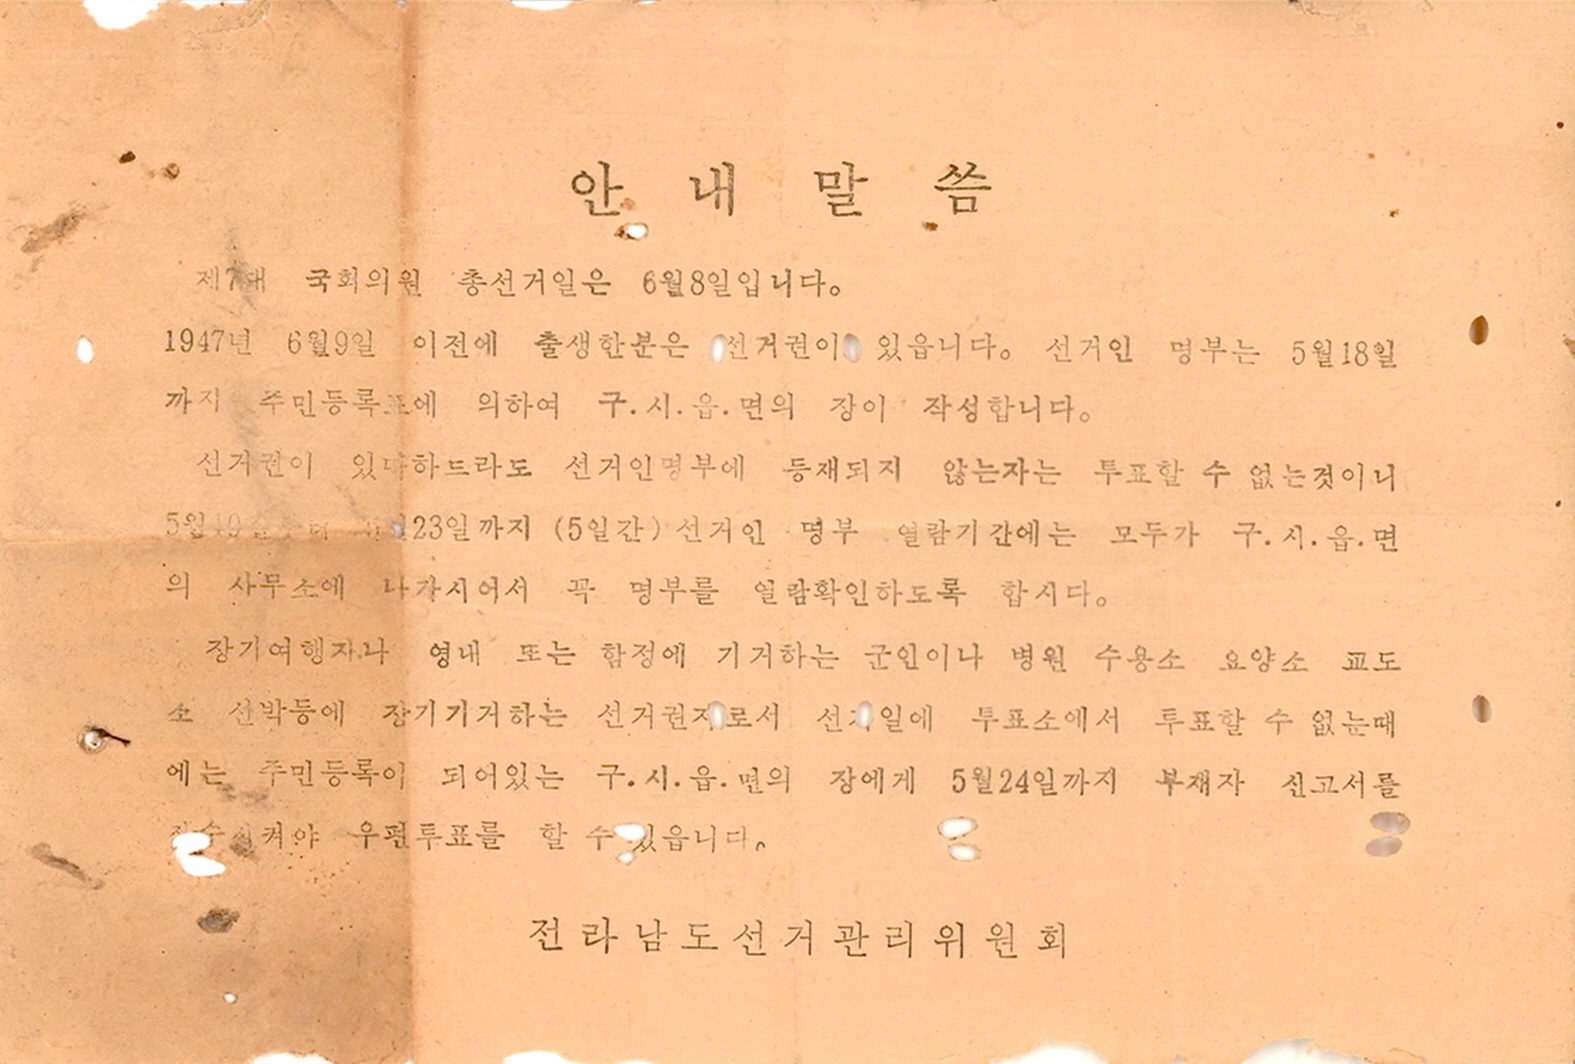 안내말씀
제7대 국회의원 총선거일은 6월8일입니다。
1947년 6월9일 이전에 출생한분은 선거권이 있읍니다。 선거인 명부는 5월18일
까지 주민등록표에 의하여 구.시.읍.면의 장이 작성합니다。
선거권이 있다하드라도 선거인명부에 등재되지 않는자는 투표할 수 없는것이니
23일까지 (5일간) 선거인 명부 열람기간에는 모두가 구.시.읍.면
의 사무소에 나가시어서 꼭 명부를 열람확인하도록 합시다。
장기여행자나 영내 또는 함정에 기거하는 군인이나 병원 수용소 요양소 교도
소 선박등에 장기기거하는 선거권자로서 선거일에 투표소에서 투표할 수 없는때
에는 주민등록이 되어있는 구.시.읍.면의 장에게 5월24일까지 부재자 신고서를
우편투표를 할 수 있읍니다。
전라남도선거관리위원회